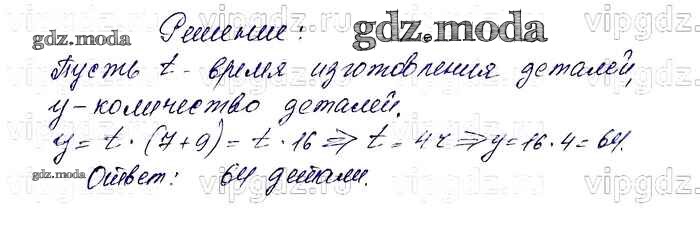 Решение:
gdz.moda
gdz.moda
Пусть t - время изготовления деталей,
y - количество деталей.
y = t · (7+9) = t · 16 ⇒ t = 4ч ⇒ y = 16 · 4 = 64.
Ответ: 64 детали.
gdz.moda
vipgdz.ru
vipgdz.ru
vipgdz.ru